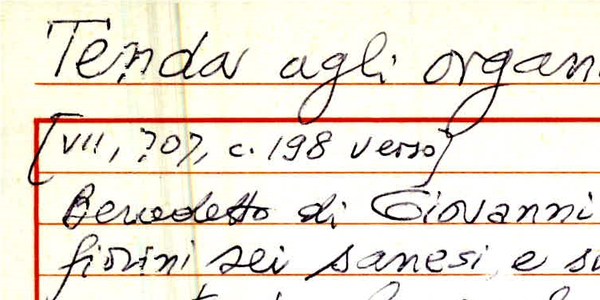 Tenda agli organ
[VII, 707, c. 198 verso]
Benedetto di Giovanni
fiorini sei sanesi e